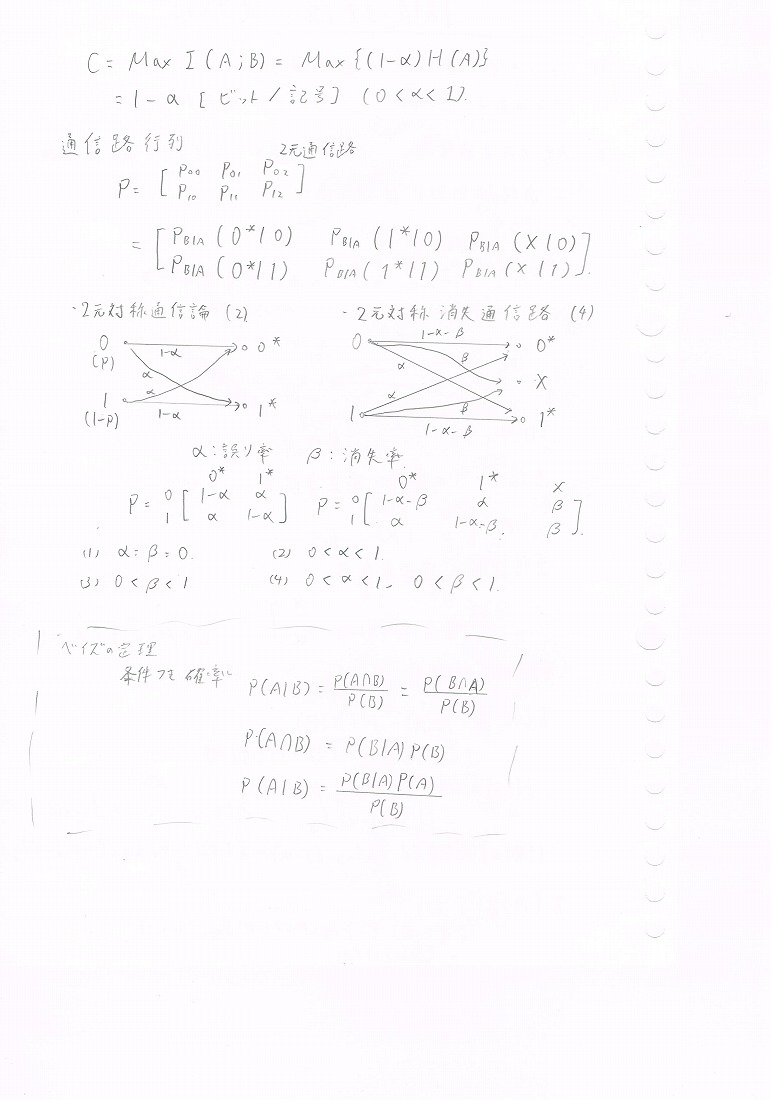 C = Max I(A;B) = Max{(1-α)H(A)}
= 1-α [ビット/記号] (0<α<1).
通信路行列 2元通信路
P = [P00 P01 P02
P10 P11 P12]
= [PB|A(0*|0) PB|A(1*|0) PB|A(X|0)
PB|A(0*|1) PB|A(1*|1) PB|A(X|1)].
・2元対称通信論 (2) ・2元対称消失通信路 (4)
0 (P) 1-α 0*
α
α
1 (1-P) 1-α 1*
0 1-α-β 0*
α β
X
α β
1 1-α-β 1*
α:誤り率 β:消失率
0* 1* 0* 1* X
P = 0 [1-α α P = 0 [1-α-β α β
1 α 1-α] 1 α 1-α-β β].
(1) α=β=0. (2) 0<α<1.
(3) 0<β<1 (4) 0<α<1, 0<β<1.
ベイズの定理
条件つき確率
P(A|B) = P(A∩B)/P(B) = P(B∩A)/P(B)
P(A∩B) = P(B|A)P(B)
P(A|B) = P(B|A)P(A)/P(B)